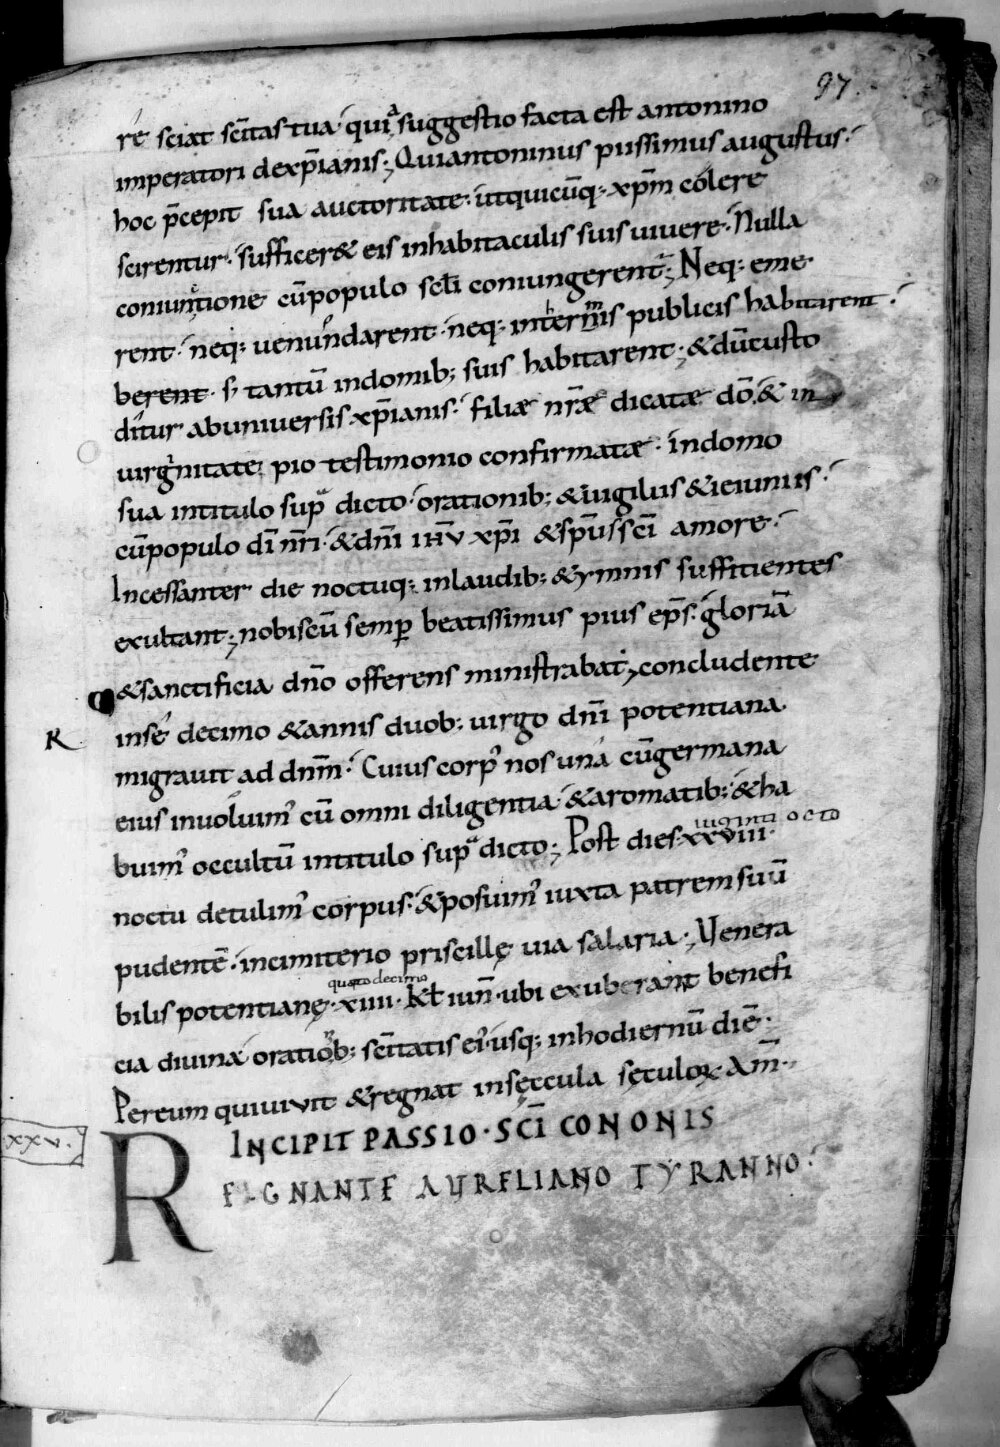 97.
rē sciat sc̄itas tua· quiª suggestio facta est antonino
imperatori dexp̄ianis; Quiantoninus piissimus augustus·
hoc p̄cepit sua auctoritate· utquicūq; xp̄m colere
scirentur· suffìcer& eis inhabitaculis suis uiuere· Nulla
coniunctione cūpopulo sc̄li coniungerent̄; Neq; eme
rent· neq; uenundarent· neq; intermīs publicis habitarent·
berent· s; tantū indomib; suis habitarent; &dūcusto
ditur abuniuersis xp̄ianis· filiæ nr̄æ dicatæ dō· & in
virginitate pio testimonio confirmatæ· indomo
sua intitulo supª dicto· orationib; &uigiliis &ieiuniis·
cūpopulo dī nr̄i· &dnī ihū xp̄i &sp̄ussc̄i amore·
Incessanter die noctuq; inlaudib; &ymnis suffitientes
exultant; nobiscū semp̄ beatissimus pius ep̄s· gloriā
&sanctificia dn̄o offerens ministrabat; concludente
insē decimo &annis duob; uirgo dn̄i potentiana
R migrauit ad dn̄m· Cuius corp' nos una cūgermana
eius inuoluim' cū omni diligentia &aromatib; &ha
uiginti octo
buim' occultū intitulo supª dicto; Post dies xxviii·
noctu detulim' corpus· &posuim' iuxta patrem suū
pudentē· incimiterio priscillę uia salaria; Venera
quarto decimo
bilis potentianę· xiiii· kł iun̄· ubi exuberant benefi
cia diuina orationib; sc̄itatis ei' usq; inhodiernū diē·
Pereum quiuiuit &regnat insęccula sęculoꝝ· Am̄·
xxv·
INCIPIT PASSIO· SC̄I CONONIS
REGNANTE AURELIANO TYRANNO·